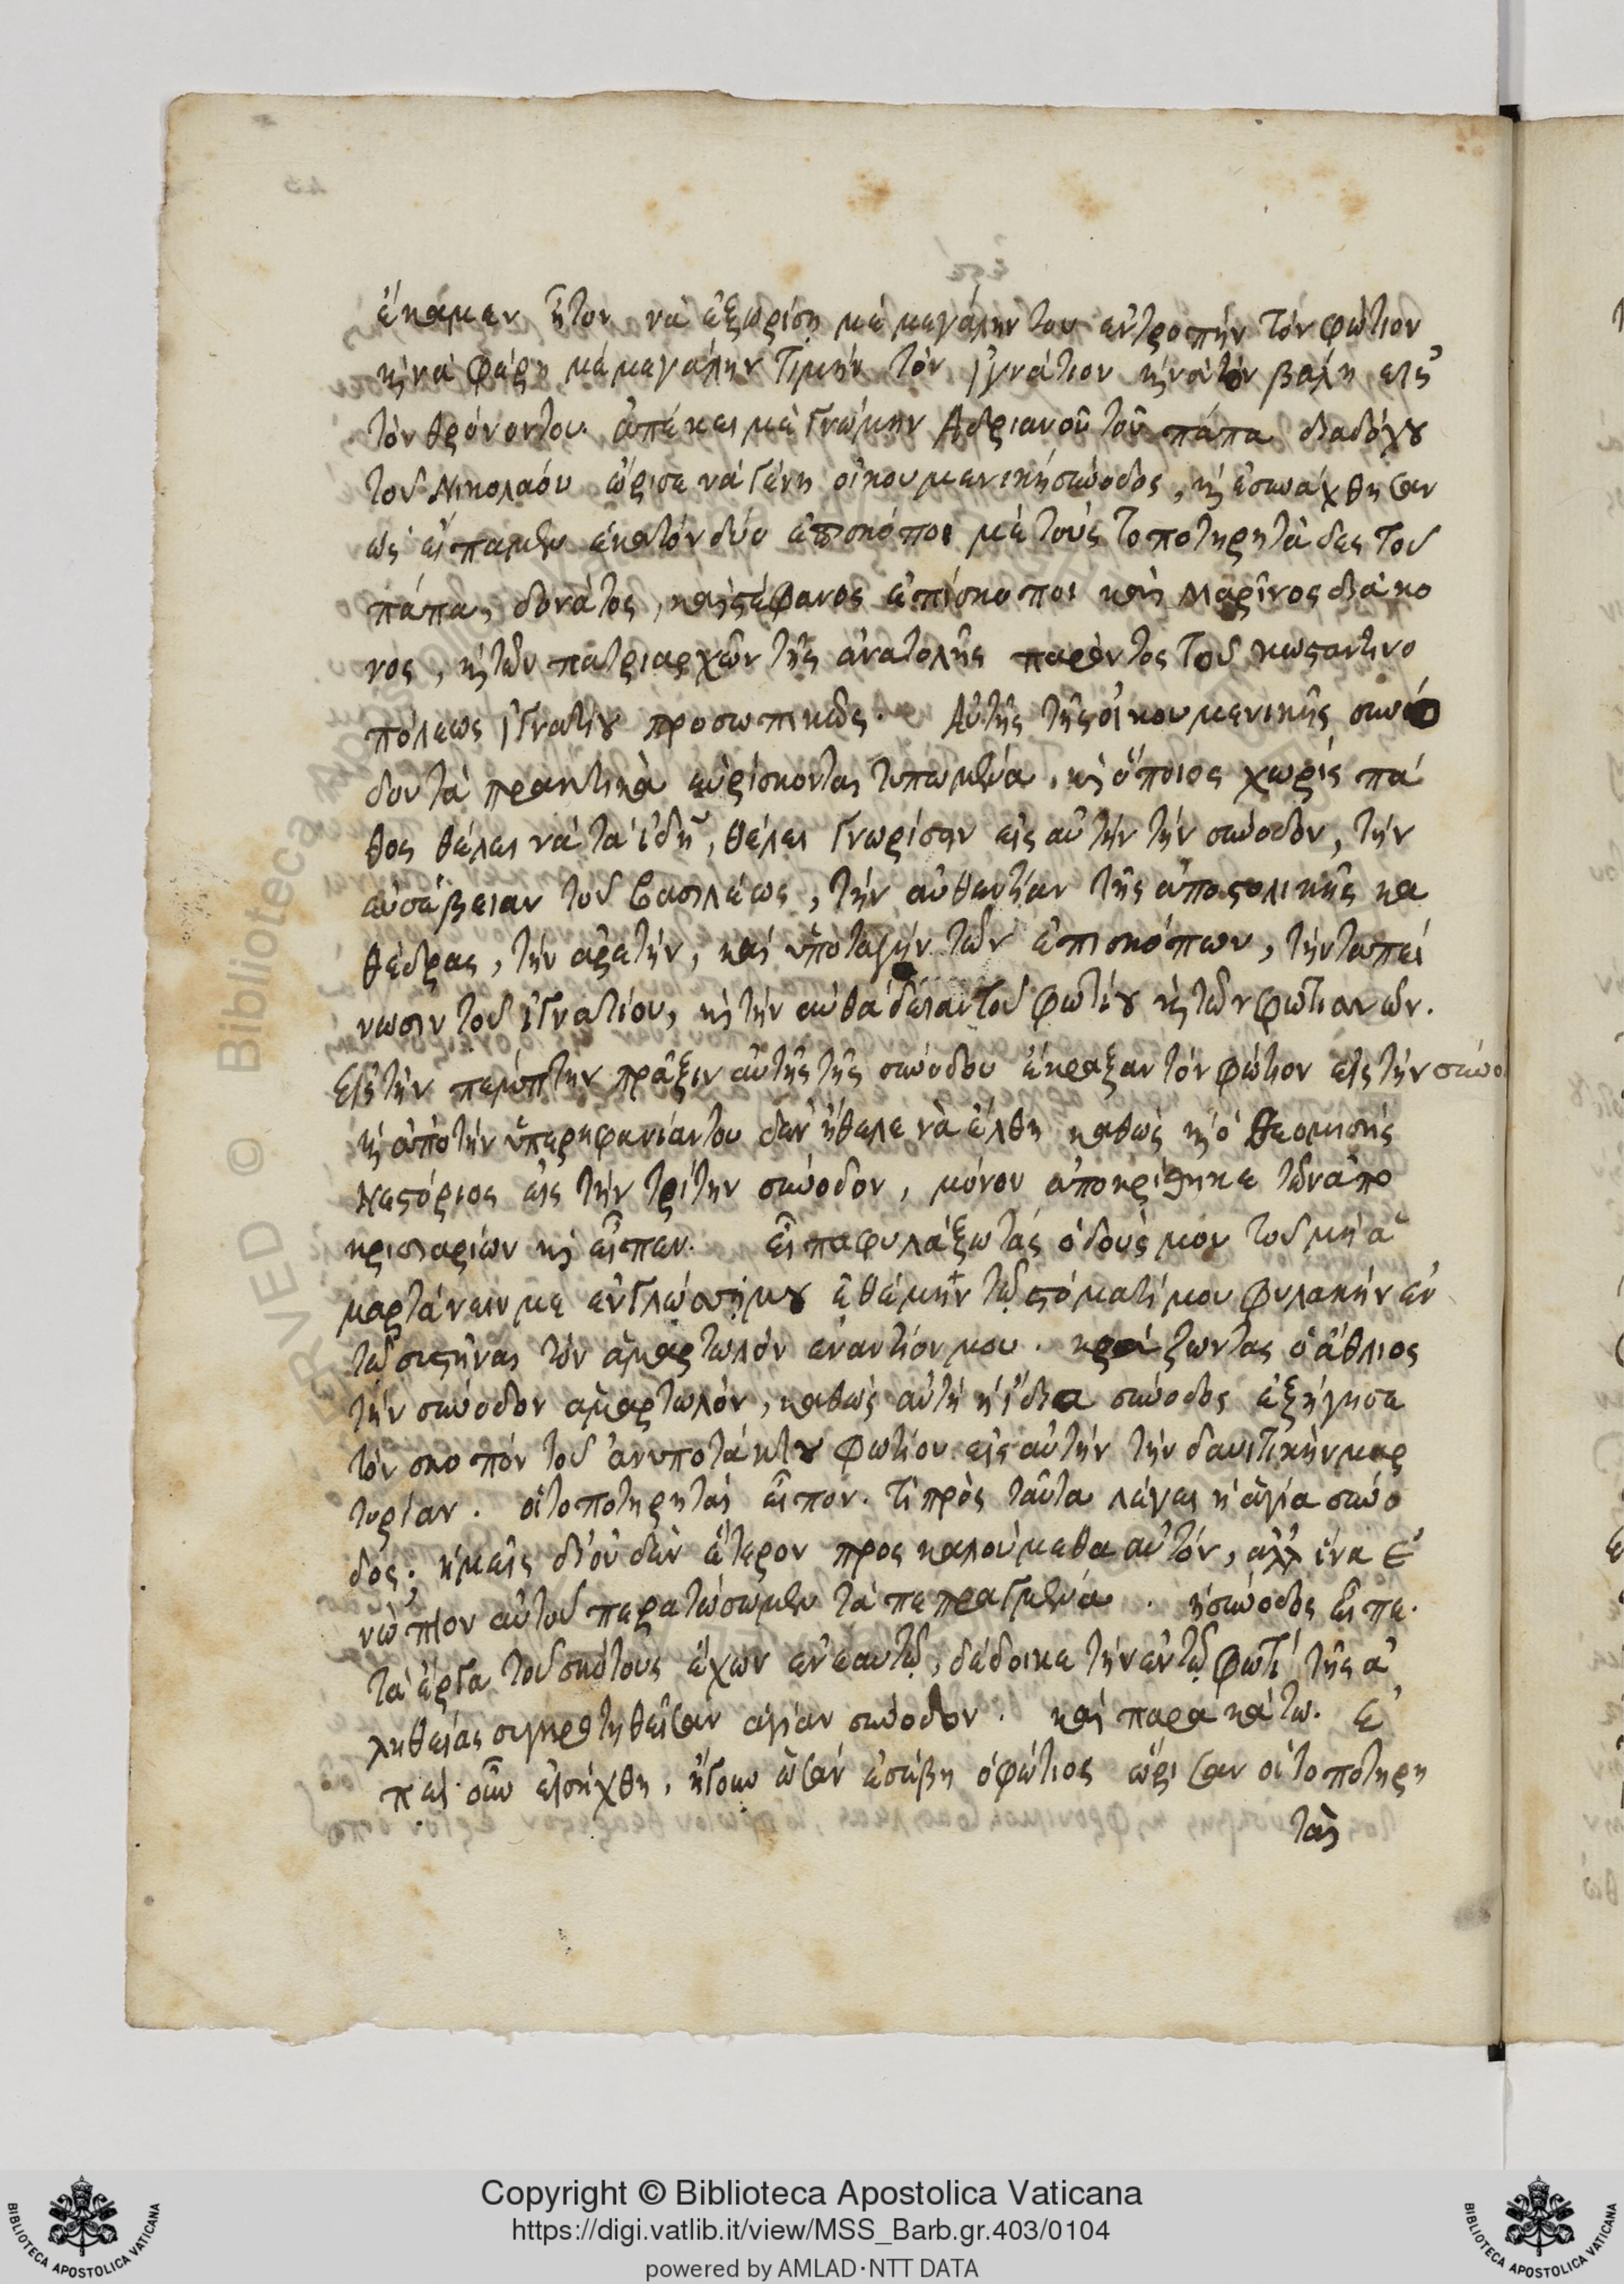 ἔκαμεν ἦτον νὰ ἐξωρίσῃ μὲ μεγάλην του ἐντροπὴν τὸν φώτιον
κὶ νὰ φέρῃ μὲ μεγάλην τιμὴν τὸν ἰγνάτιον κὶ νὰ τὸν βάλῃ εἰς
τὸν θρόνον του. ἀπέκει μὲ γνώμην Ἀδριανοῦ τοῦ πάπα διαδόχου
τοῦ Νικολάου ὥρισε νὰ γένῃ οἰκουμενικὴ σύνοδος, κὶ ἐσυνάχθησαν
ὡς εἴπαμεν ἑκατὸν δύο ἐπισκόποι μὲ τοὺς τοποτηρητάδες τοῦ
πάπα, δονάτος, καὶ στέφανος ἐπίσκοποι καὶ Μαρῖνος διάκο
νος, κὶ τῶν πατριαρχῶν τῆς ἀνατολῆς παρόντος τοῦ κωσταντινο
πόλεως ἰγνατίου προσωπικῶς. Αὐτῆς τῆς οἰκουμενικῆς συνό
δου τὰ πρακτικὰ εὑρίσκονται τυπωμένα, κὶ ὅποιος χωρὶς πά
θος θέλει νὰ τὰ ἰδῇ, θέλει γνωρίσειν εἰς αὐτὴν τὴν σύνοδον, τὴν
εὐσέβειαν τοῦ βασιλέως, τὴν αὐθεντίαν τῆς ἀποστολικῆς κα
θέδρας, τὴν ἀρετὴν, καὶ ὑποταγὴν τῶν ἐπισκόπων, τὴν ταπεί
νωσιν τοῦ ἰγνατίου, κὶ τὴν αὐθάδειαν τοῦ φωτίου κὶ τῶν φωτιανῶν.
Εἰς τὴν πέμπτην πρᾶξιν αὐτῆς τῆς συνόδου ἔκραξαν τὸν φώτιον εἰς τὴν σύνο
κὶ ἀπὸ τὴν ὑπερηφανίαν του δὲν ἤθελε νὰ ἔλθῃ καθὼς κὶ ὁ θεομισὴς
Νεστόριος εἰς τὴν τρίτην σύνοδον, μόνον ἀποκρίθηκε τῶν ἀπο
κρισιαρίων κὶ εἶπεν. εἶπα φυλάξω τὰς ὁδούς μου τοῦ μὴ ἁ
μαρτάνειν με ἐν γλώσσῃ μου ἐθέμην τῷ στόματί μου φυλακὴν ἐν
τῷ συστῆναι τὸν ἁμαρτωλὸν ἐναντίον μου. κράζωντας ὁ ἄθλιος
τὴν σύνοδον ἁμαρτωλὸν, καθὼς αὐτὴ ἡ ἴδια σύνοδος ἐξήγησε
τὸν σκοπὸν τοῦ ἀνυποτάκτου φωτίου εἰς αὐτὴν τὴν δαυιτικὴν μαρ
τυρίαν. οἱ τοποτηρηταὶ εἶπον. τὶ πρὸς ταῦτα λέγει ἡ ἁγία σύνο
δος; ἡμεῖς δι' οὐδὲν ἕτερον προσκαλούμεθα αὐτόν, ἀλλ' ἵνα ἐ
νώπιον αὐτοῦ περατώσωμεν τὰ πεπραγμένα. ἡ σύνοδος εἶπε.
τὰ ἔργα τοῦ σκότους ἔχων ἐν ἑαυτῷ, δέδοικε τὴν ἐν τῷ φωτὶ τῆς ἀ
ληθείας συγκροτηθεῖσαν ἁγίαν σύνοδον. καὶ παρὰ κάτω. Ἐ
πεὶ οὖν εἰσήχθη, ἤγουν ὡσὰν ἐσέβη ὁ φώτιος ὥρισαν οἱ τοποτηρη
ταὶ
Copyright © Biblioteca Apostolica Vaticana
https://digi.vatlib.it/view/MSS_Barb.gr.403/0104
powered by AMLAD·NTT DATA